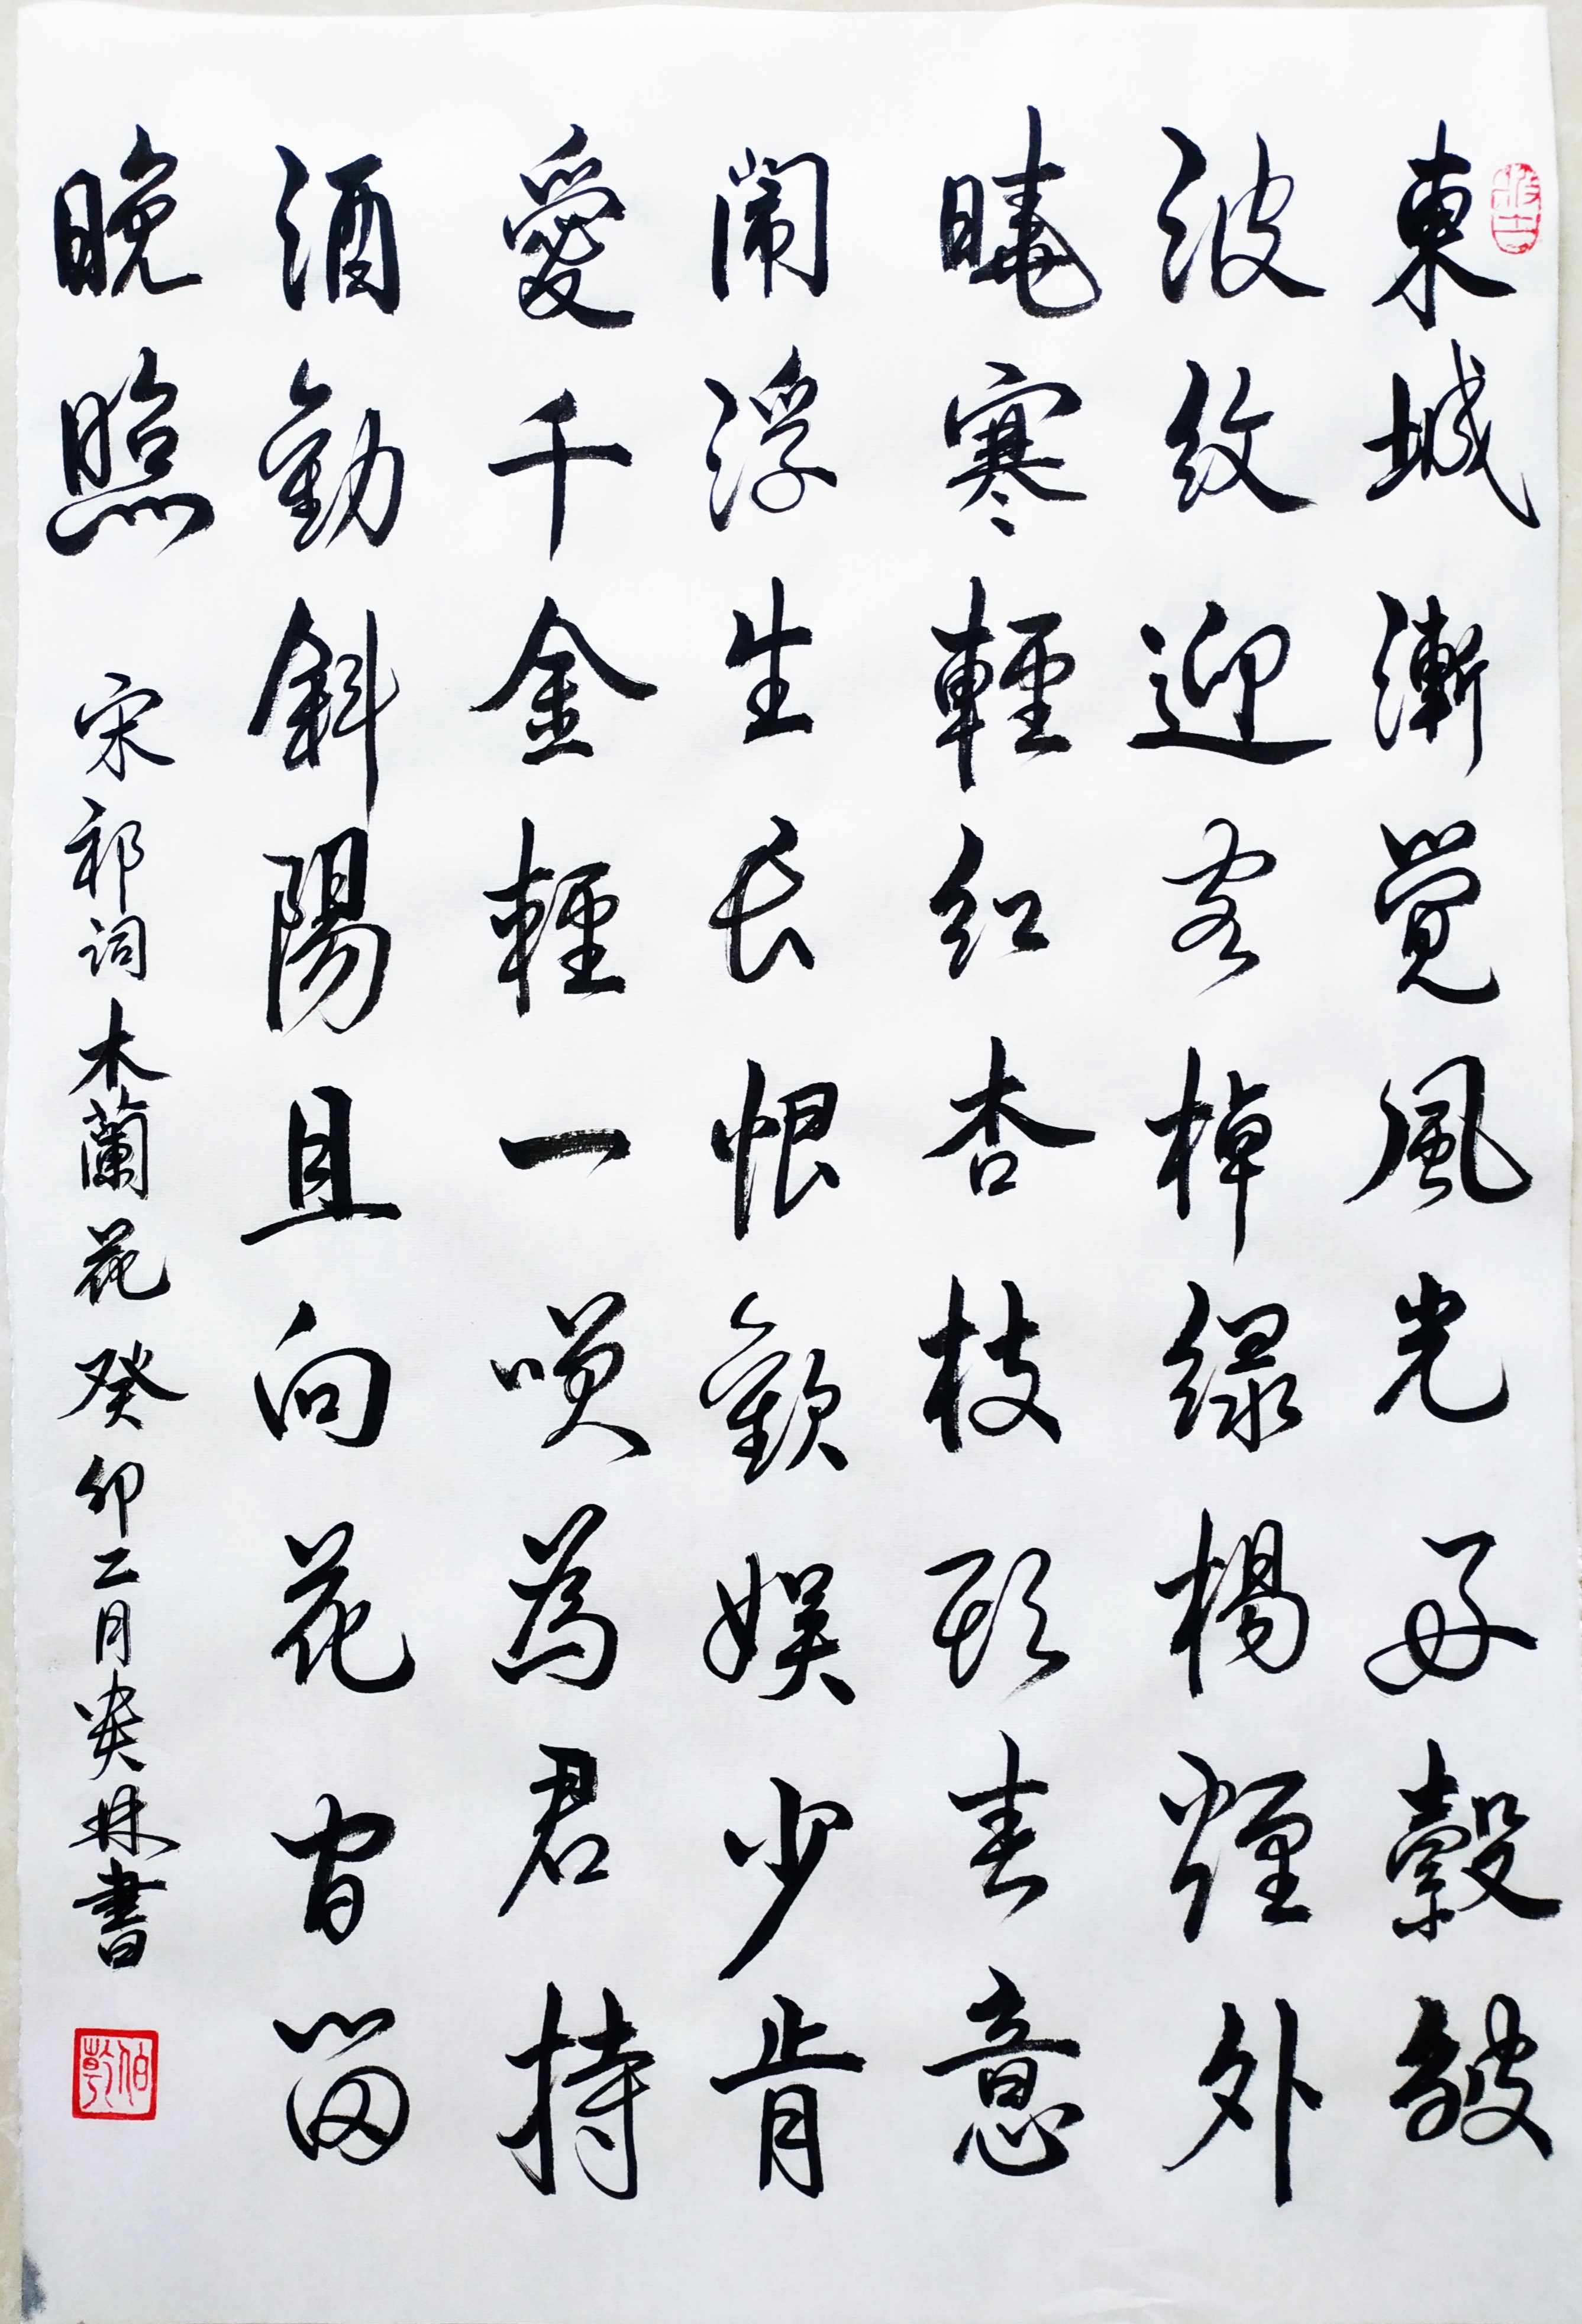 東城漸覺風光好縠皺
波紋迎客棹緑楊煙外
曉寒輕紅杏枝頭春意
闹浮生长恨歡娱少肯
愛千金輕一笑為君持
酒勸斜陽且向花间留
晚照
宋祁词木蘭花癸卯二月贵林書
伯乾